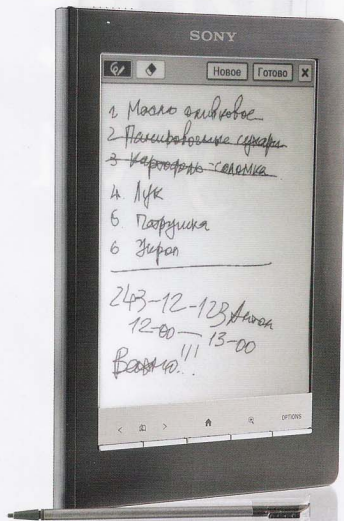 SONY
Новое Готово X
1 Масло оливковое
2 Панировочные сухари
3 Картофель-соломка
4. Лук
6. Петрушка
6 Укроп
243-12-123 Антон
12-00 — 13-00
Важно!!!...
OPTIONS